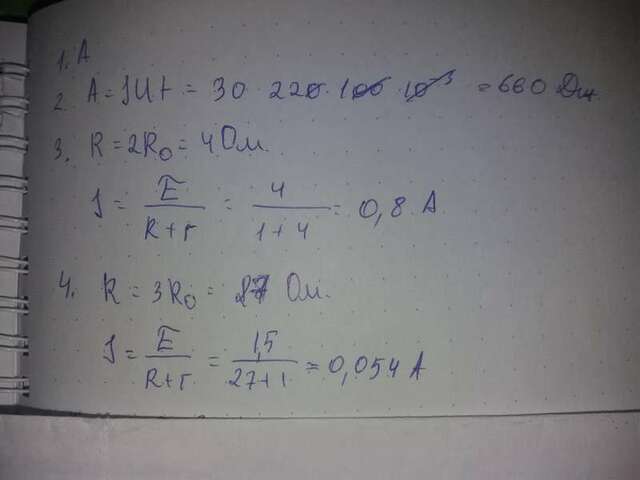 1. A
2. A = IUt = 30 · 220 · 100 · 10⁻³ = 660 Дж
3. R = 2R₀ = 4 Ом
I = E / (R + r) = 4 / (1 + 4) = 0,8 А
4. R = 3R₀ = 27 Ом.
I = E / (R + r) = 1,5 / (27 + 1) = 0,054 А